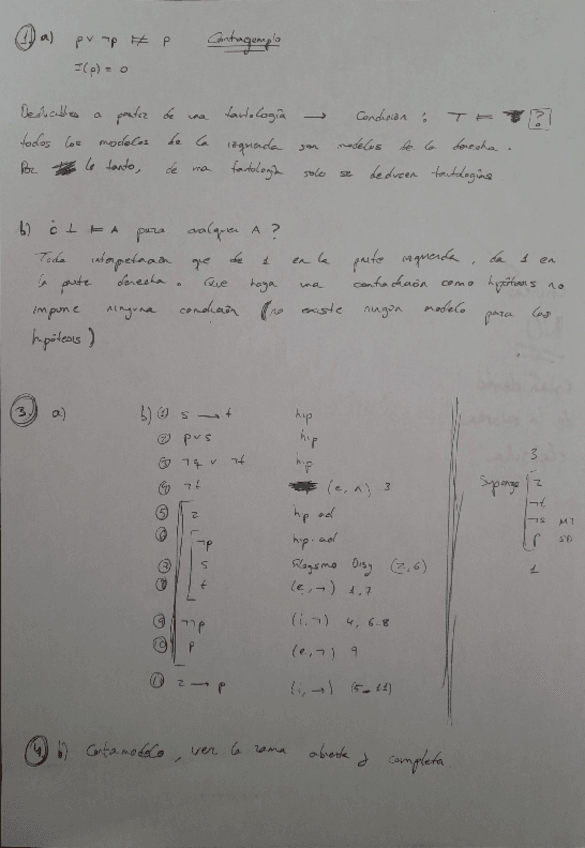 ① a) p ∨ ¬p ⊭ p Contraejemplo
I(p) = 0
Deducibles a partir de una tautología → Condición : ⊤ ⊨ ?
todos los modelos de la izquierda son modelos de la derecha.
Por lo tanto, de una tautología solo se deducen tautologías
b) ¿ ⊥ ⊨ A para cualquier A ?
Toda interpretación que de 1 en la parte izquierda, da 1 en
la parte derecha. Que haya una contradicción como hipótesis no
impone ninguna condición (no existe ningún modelo para las
hipótesis)
③ a) b) ① s → t hip
② p ∨ s hip
③ ¬q ∨ ¬t hip
④ ¬t (e, ∧) 3
⑤ z hp ad
⑥ ¬p hip. ad
⑦ s Silogismo Disy (2, 6)
⑧ t (e, →) 1, 7
⑨ ¬¬p (i, ¬) 4, 6-8
⑩ p (e, ¬) 9
⑪ z → p (i, →) (5-11)
3
Supongo z
¬t
¬s MT
p SD
1
④ b) Contramodelo, ver la rama abierta y completa.